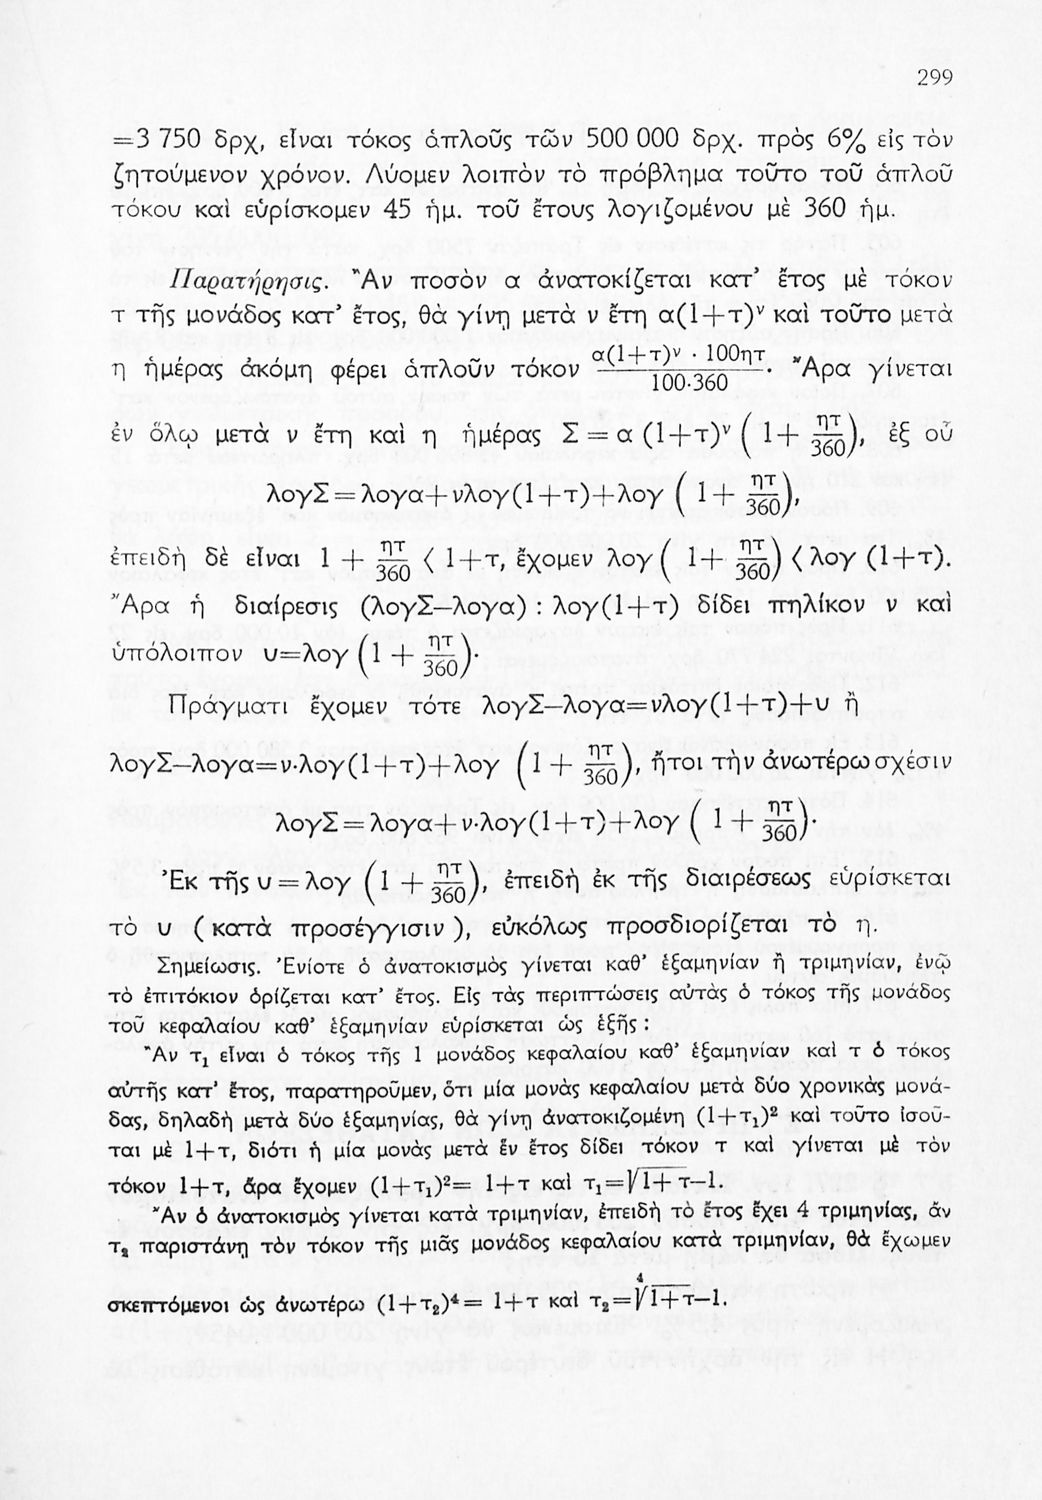 299
=3 750 δρχ, εἶναι τόκος ἁπλοῦς τῶν 500 000 δρχ. πρὸς 6% εἰς τὸν
ζητούμενον χρόνον. Λύομεν λοιπὸν τὸ πρόβλημα τοῦτο τοῦ ἁπλοῦ
τόκου καὶ εὑρίσκομεν 45 ἡμ. τοῦ ἔτους λογιζομένου μὲ 360 ἡμ.
Παρατήρησις. Ἂν ποσὸν α ἀνατοκίζεται κατ’ ἔτος μὲ τόκον
τ τῆς μονάδος κατ’ ἔτος, θὰ γίνῃ μετὰ ν ἔτη α(1+τ)ᵛ καὶ τοῦτο μετὰ
η ἡμέρας ἀκόμη φέρει ἁπλοῦν τόκον α(1+τ)ᵛ · 100ητ / 100·360. Ἄρα γίνεται
ἐν ὅλῳ μετὰ ν ἔτη καὶ η ἡμέρας Σ = α (1+τ)ᵛ ( 1+ ητ/360), ἐξ οὗ
λογΣ = λογα+νλογ(1+τ)+λογ ( 1+ ητ/360),
ἐπειδὴ δὲ εἶναι 1 + ητ/360 < 1+τ, ἔχομεν λογ ( 1+ ητ/360) < λογ (1+τ).
Ἄρα ἡ διαίρεσις (λογΣ—λογα) : λογ(1+τ) δίδει πηλίκον ν καὶ
ὑπόλοιπον υ=λογ (1 + ητ/360).
Πράγματι ἔχομεν τότε λογΣ—λογα=νλογ(1+τ)+υ ἢ
λογΣ—λογα=ν·λογ(1+τ)+λογ (1 + ητ/360), ἤτοι τὴν ἀνωτέρω σχέσιν
λογΣ = λογα+ν·λογ(1+τ)+λογ ( 1 + ητ/360).
Ἐκ τῆς υ = λογ (1 + ητ/360), ἐπειδὴ ἐκ τῆς διαιρέσεως εὑρίσκεται
τὸ υ ( κατὰ προσέγγισιν ), εὐκόλως προσδιορίζεται τὸ η.
Σημείωσις. Ἐνίοτε ὁ ἀνατοκισμὸς γίνεται καθ’ ἑξαμηνίαν ἢ τριμηνίαν, ἐνῷ
τὸ ἐπιτόκιον ὁρίζεται κατ’ ἔτος. Εἰς τὰς περιπτώσεις αὐτὰς ὁ τόκος τῆς μονάδος
τοῦ κεφαλαίου καθ’ ἑξαμηνίαν εὑρίσκεται ὡς ἑξῆς :
Ἂν τ₁ εἶναι ὁ τόκος τῆς 1 μονάδος κεφαλαίου καθ’ ἑξαμηνίαν καὶ τ ὁ τόκος
αὐτῆς κατ’ ἔτος, παρατηροῦμεν, ὅτι μία μονὰς κεφαλαίου μετὰ δύο χρονικὰς μονά-
δας, δηλαδὴ μετὰ δύο ἑξαμηνίας, θὰ γίνῃ ἀνατοκιζομένη (1+τ₁)² καὶ τοῦτο ἰσοῦ-
ται μὲ 1+τ, διότι ἡ μία μονὰς μετὰ ἓν ἔτος δίδει τόκον τ καὶ γίνεται μὲ τὸν
τόκον 1+τ, ἄρα ἔχομεν (1+τ₁)²= 1+τ καὶ τ₁=√1+τ—1.
Ἂν ὁ ἀνατοκισμὸς γίνεται κατὰ τριμηνίαν, ἐπειδὴ τὸ ἔτος ἔχει 4 τριμηνίας, ἂν
τ₂ παριστάνῃ τὸν τόκον τῆς μιᾶς μονάδος κεφαλαίου κατὰ τριμηνίαν, θὰ ἔχωμεν
σκεπτόμενοι ὡς ἀνωτέρω (1+τ₂)⁴= 1+τ καὶ τ₂=⁴√1+τ—1.